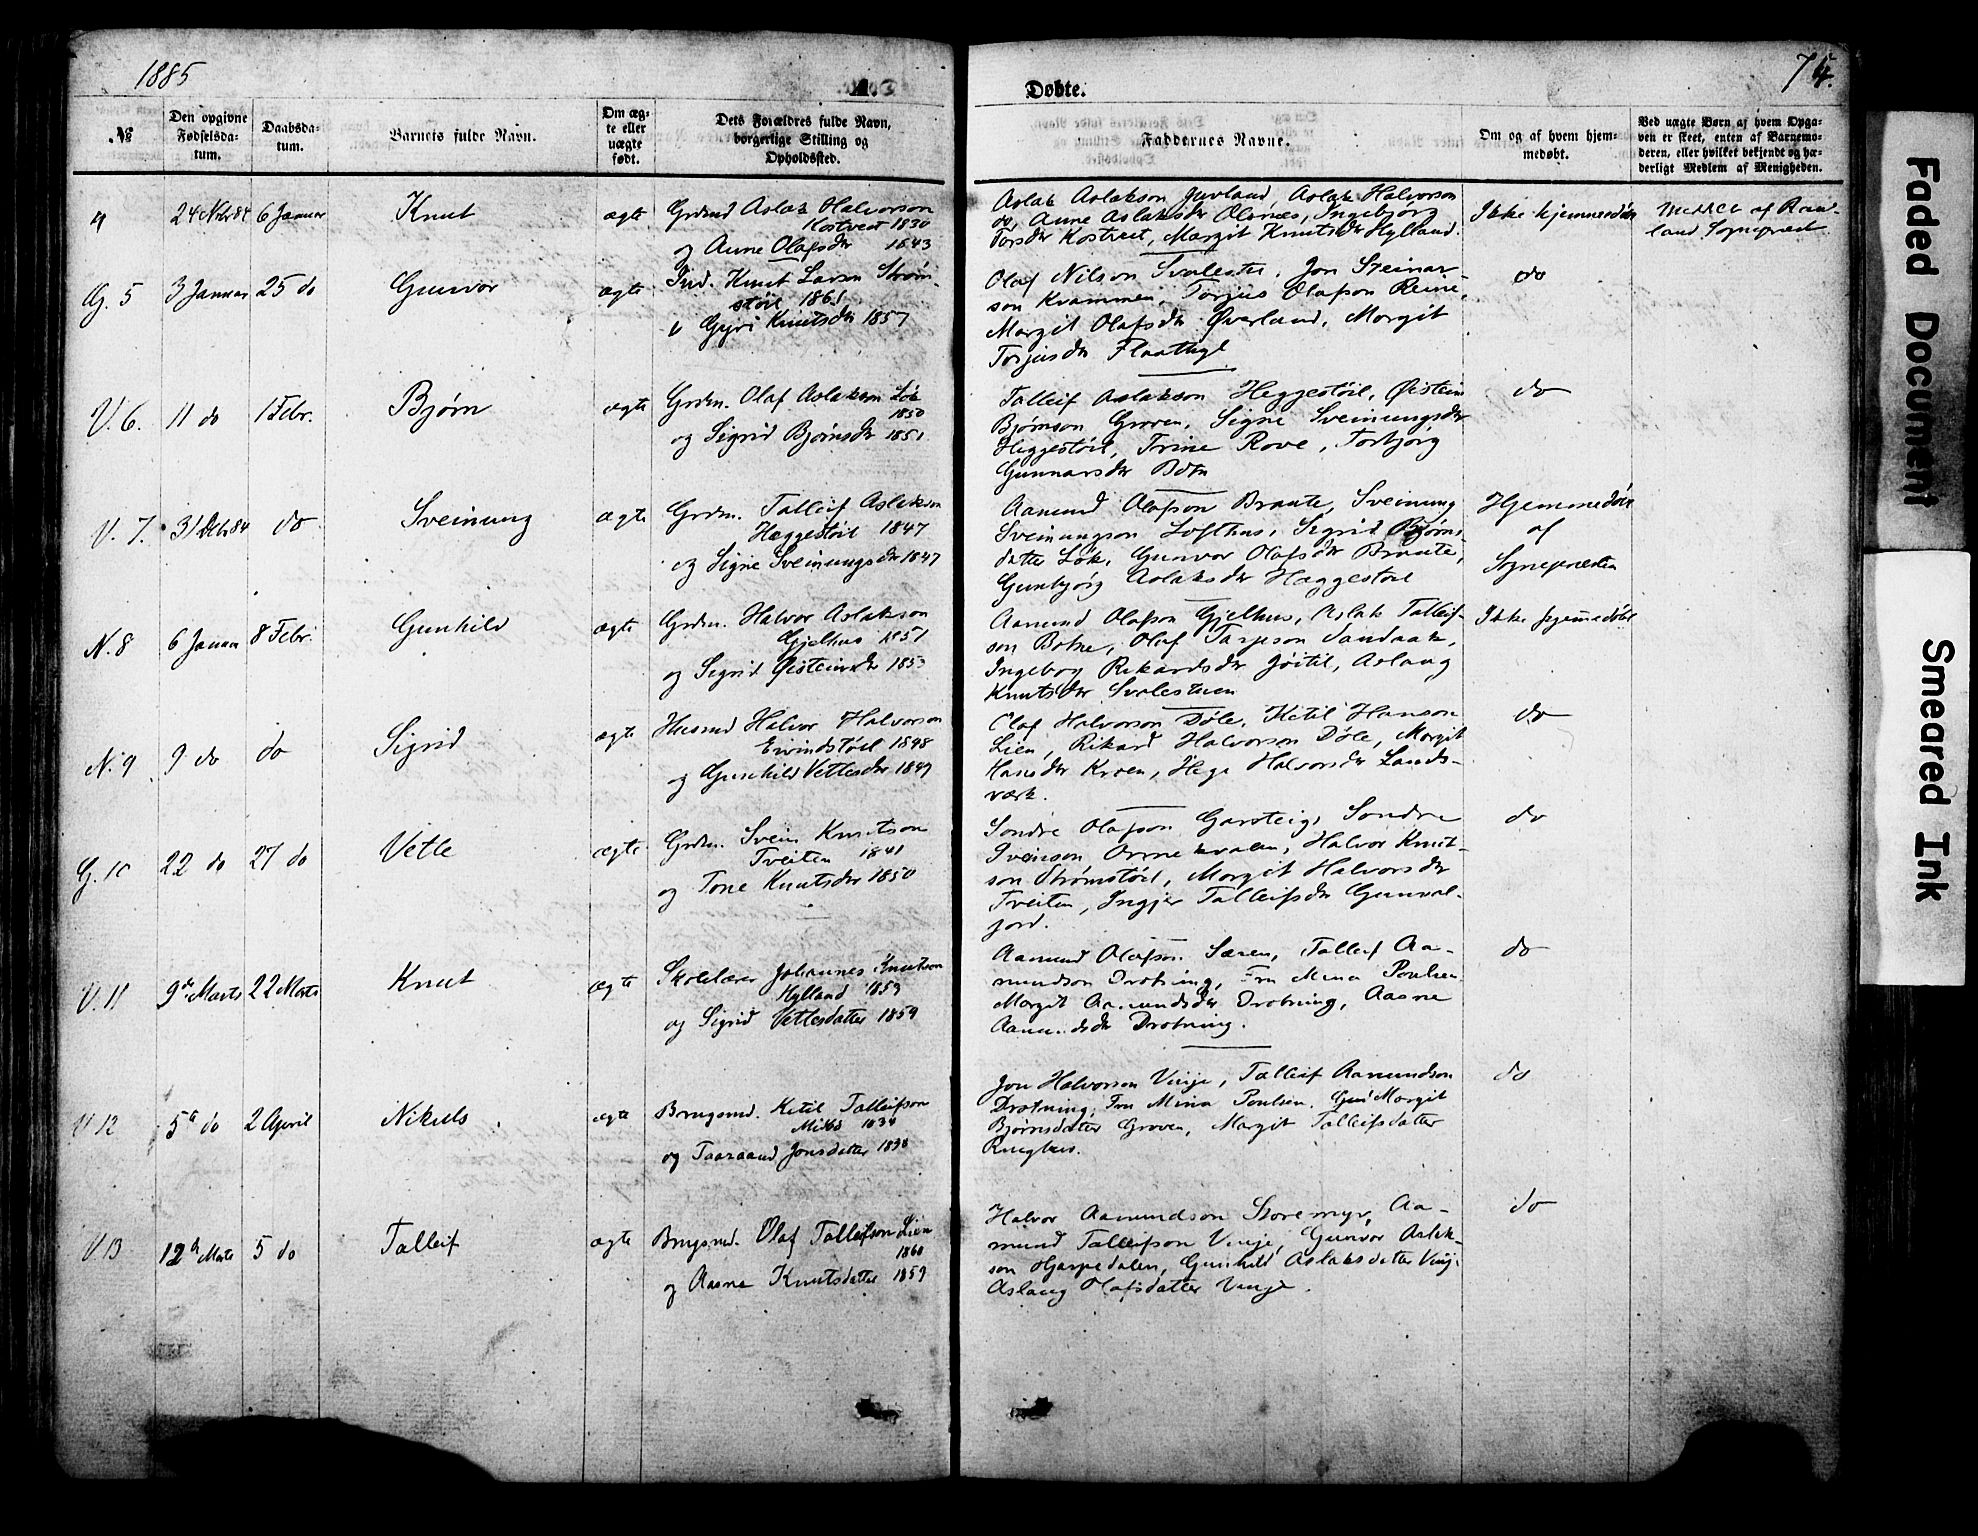 1885
Døbte.
75.
№
Den opgivne Fødselsdatum.
Daabsdatum.
Barnets fulde Navn.
Om ægte eller uægte født.
Dets Forældres fulde Navn, borgerlige Stilling og Opholdssted.
Faddernes Navne.
Om og af hvem hjemmedøbt.
Ved uægte Børn af hvem Opgaven er skeet, enten af Barnemoderen, eller hvilket bekjendt og hæderligt Medlem af Menigheden.
4
24 Nvbr 84
6 Januar
Knut
ægte
Grdmd Aslak Halvorson
Kostveit 1830
og Anne Olafsdr 1843
Aslak Aslakson Juvland, Aslak Halvorson
do, Anne Aslaksdr Olsnes, Ingebjørg
Torsdr Kostveit, Margit Knutsdr Hylland.
Ikke hjemmedøbt
af Rauland Sognepræst
G. 5
3 Januar
25 do
Gunvor
ægte
Ind. Knut Larsn Strøm-
støil 1861
o Gyri Knutsdr 1857
Olaf Nilson Svalestu, Jon Steinar-
son Kvammen, Torjus Olafson Reine,
Margit Olafsdr Øverland, Margit
Torjusdr Flaathyl
do
V. 6.
11 do
1 Febr.
Bjørn
ægte
Grdm. Olaf Aslakson Løk
1850
og Sigrid Bjørnsdr 1851
Talleif Aslakson Heggestøil, Øistein
Bjørnson Groven, Signe Sveinungsdr
Heggestøil, Trine Rove, Torbjørg
Gunnarsdr Botn
do
V. 7.
31 Decbr 84
do
Sveinung
ægte
Grdm. Talleif Aslakson
Hæggestøil 1847
og Signe Sveinungsdr 1847
Aamund Olafson Braate, Sveinung
Sveinungson Lofthus, Sigrid Bjørns-
datter Løk, Gunvor Olafsdr Braate,
Gunbjørg Aslaksdr Hæggestøil
Hjemmedøbt
af
Sognepræsten
N. 8
6 Januar
8 Febr.
Gunhild
ægte
Grdm. Halvor Aslakson
Gjelhus 1851
og Sigrid Øisteinsdr 1853
Aamund Olafson Gjelhus, Aslak Talleif-
son Botne, Olaf Tarjeson Sandaak,
Ingebog Rikardsdr Jøitil, Aslaug
Knutsdr Svalestuen
Ikke hjemmedøbt
N. 9
9 do
do
Sigrid
ægte
Husmd Halvor Halvorson
Eivindstøil 1848
og Gunhild Vetlesdr 1849
Olaf Halvorson Døle, Ketil Hanson
Lien, Rikard Halvorson Døle, Margit
Hansdr Kroen, Hege Halvorsdr Lands-
værk.
do
G. 10
22 do
27 do
Vetle
ægte
Grdm. Svein Knutson
Tveiten 1841
og Tone Knutsdr 1850
Sondre Olafson Garsteig, Sondre
Sveinson Ormekvalen, Halvor Knut-
son Strømstøil, Margit Halvorsdr
Tveiten, Ingjer Talleifsdr Gunval-
jord.
do
V. 11
9de Marts
22 Marts
Knut
ægte
Skolelærer Johannes Knutson
Hylland 1859
og Sigrid Vetlesdatter 1859
Aamund Olafson Særen, Talleif Aa-
mundson Drotning, Fru Mina Poulsen
Margit Aamundsdr Drotning, Aasne
Aamundsdr Drotning.
do
V 12
5te do
2 April
Nikuls
ægte
Brugsmd. Ketil Talleifson
1834
og Taaraand Jonsdatter 1838
Jon Halvorson Vinje, Talleif Aamundson
Drotning, Fru Mina Poulsen, Margit
Bjørnsdatter Groven, Margit Talleifsdatter
Ringhus.
do
V 13
12te Marts
5 do
Talleif
ægte
Brugsmd. Olaf Talleifson Lien
1860
og Aasne Knutsdatter 1859
Halvor Aamundson Storemyr, Aa-
mund Talleifson Vinje, Gunvor Aslak-
son Hjarpedalen, Gunhild Aslaksdatter Vinje
Aslaug Olafsdatter Vinje.
do
Faded Document
Smeared Ink